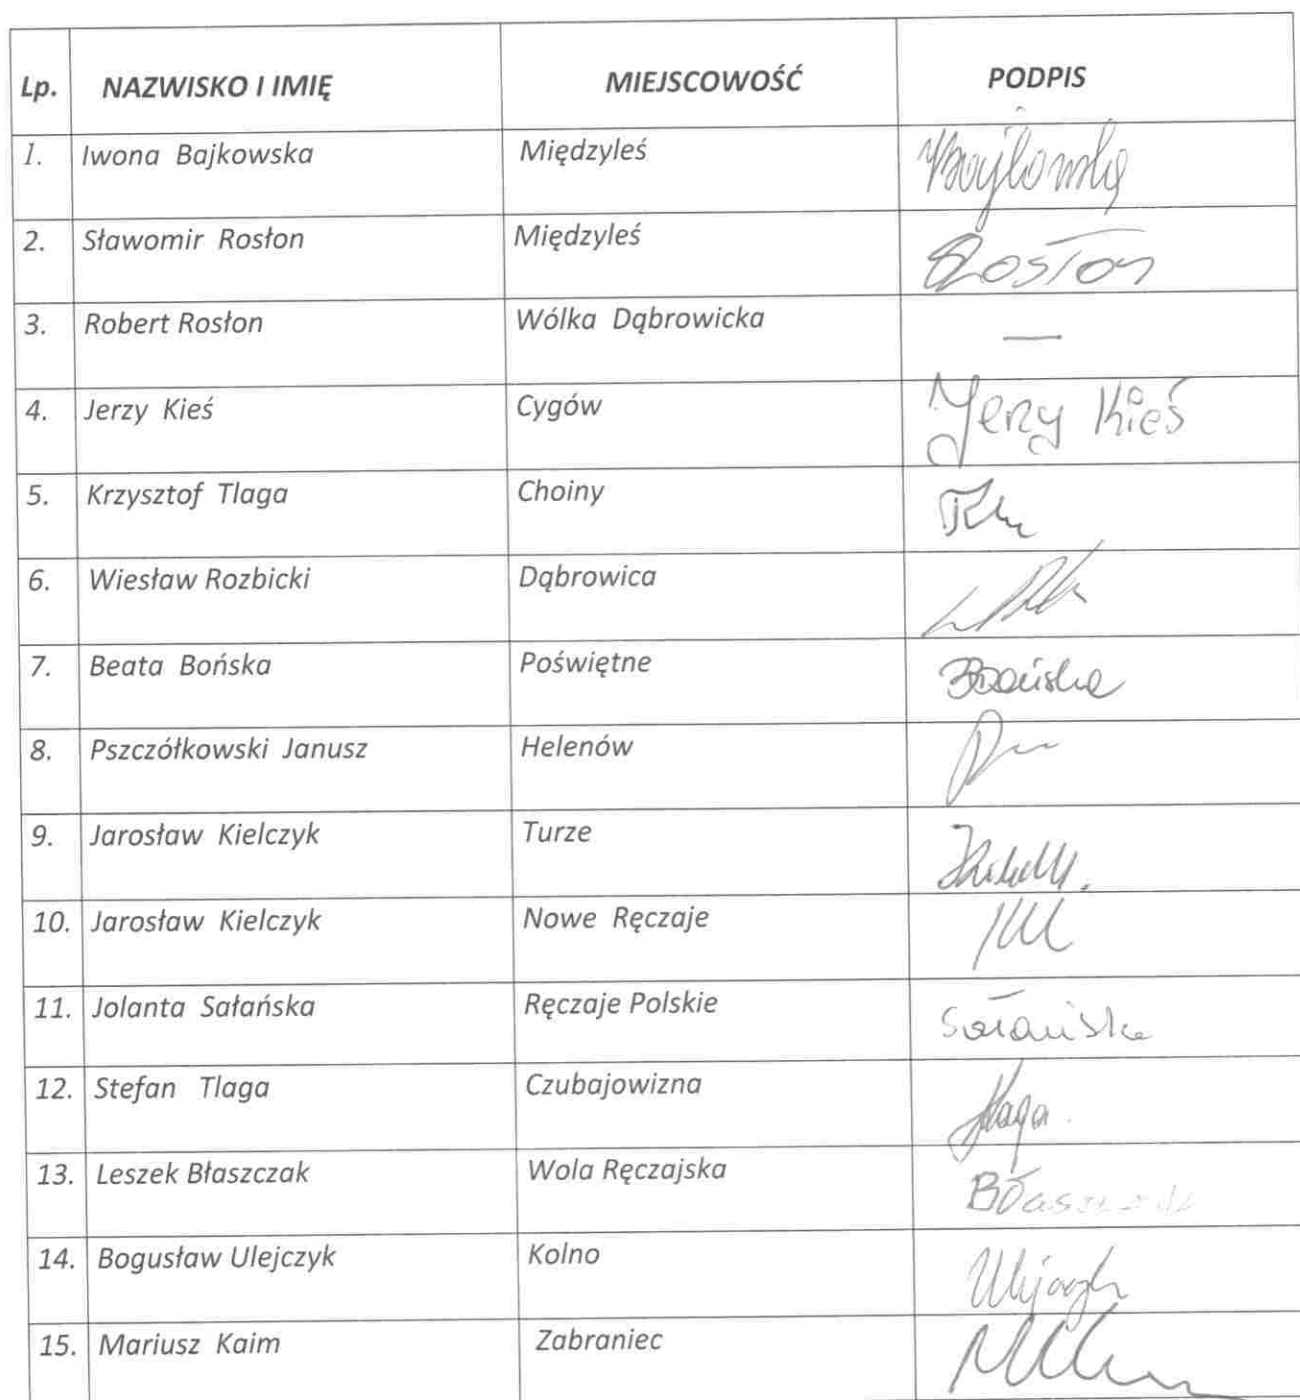 Lp. NAZWISKO I IMIĘ MIEJSCOWOŚĆ PODPIS
1. Iwona Bajkowska Międzyleś
2. Sławomir Rosłon Międzyleś Rosłon
3. Robert Rosłon Wólka Dąbrowicka —
4. Jerzy Kieś Cygów Jerzy Kieś
5. Krzysztof Tlaga Choiny
6. Wiesław Rozbicki Dąbrowica
7. Beata Bońska Poświętne BBońska
8. Pszczółkowski Janusz Helenów
9. Jarosław Kielczyk Turze
10. Jarosław Kielczyk Nowe Ręczaje
11. Jolanta Sałańska Ręczaje Polskie Sałańska
12. Stefan Tlaga Czubajowizna Tlaga
13. Leszek Błaszczak Wola Ręczajska Błaszczak
14. Bogusław Ulejczyk Kolno
15. Mariusz Kaim Zabraniec